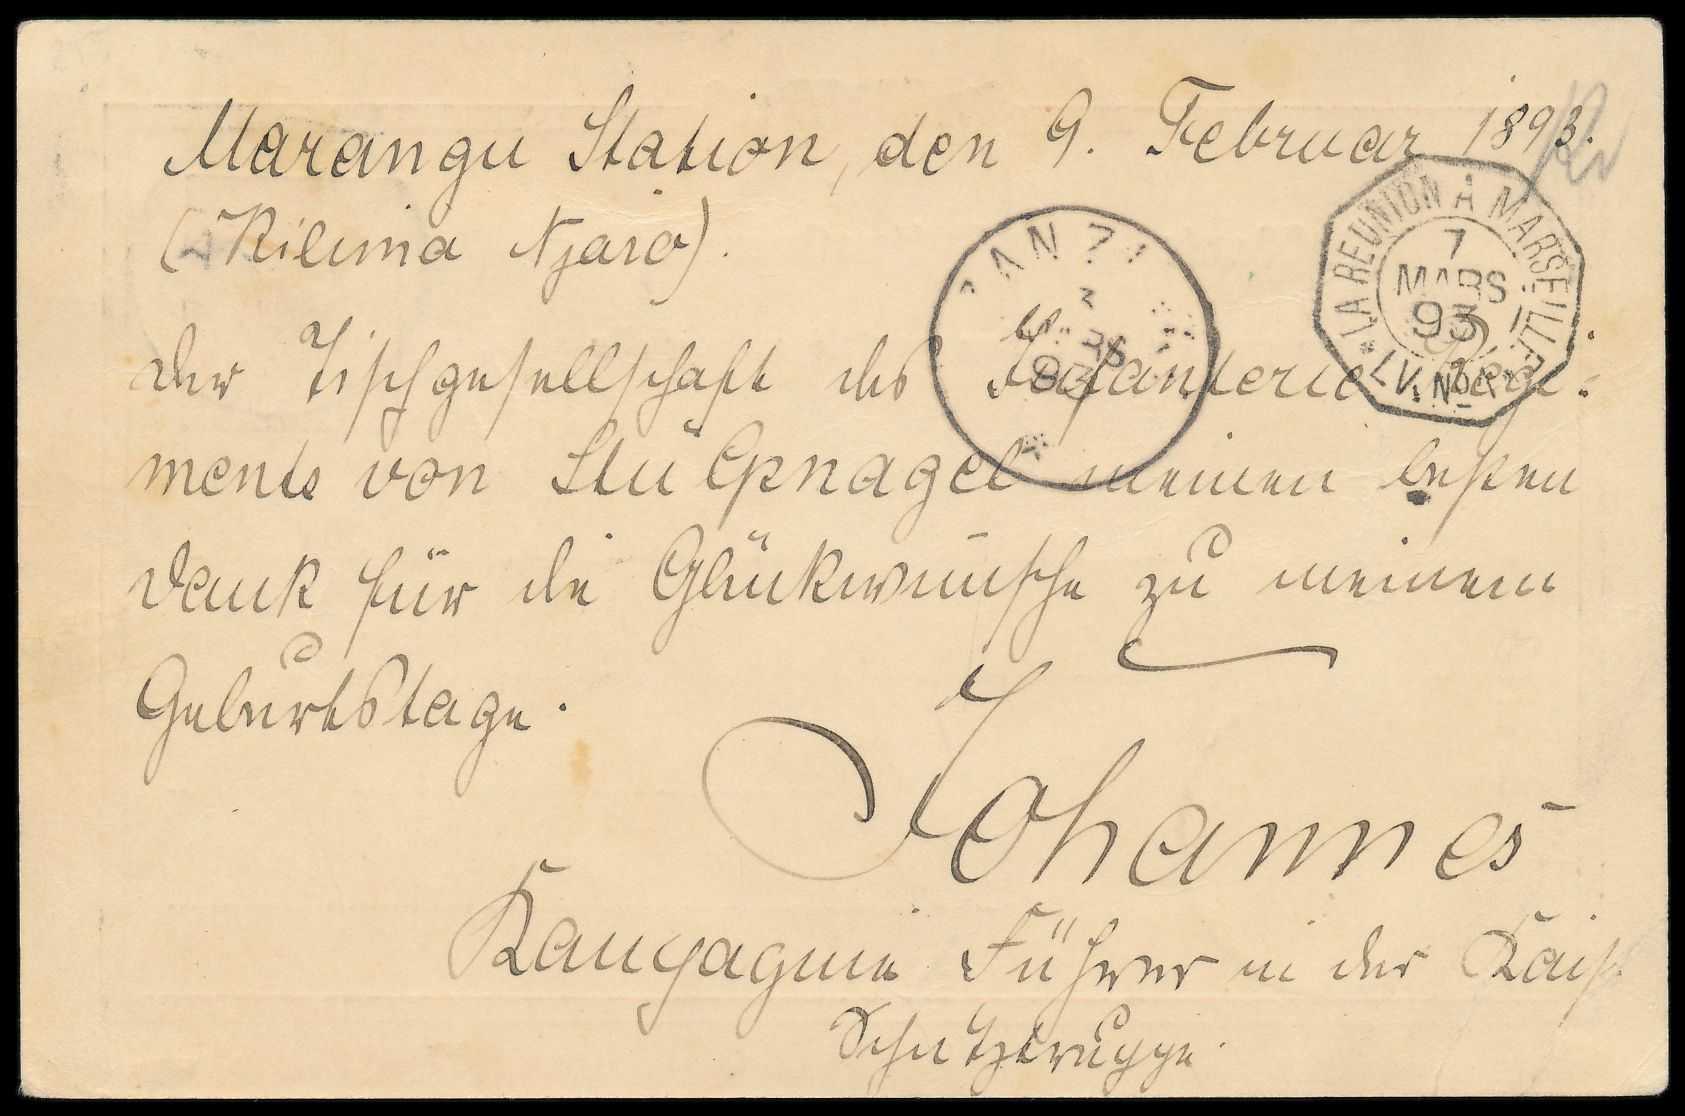 Marangu Station, den 9. Februar 1893.
(Kilima Njaro).
Der Tischgesellschaft des Infanterie Regi-
ments von Stülpnagel meinen besten
Dank für die Glückwünsche zu meinem
Geburtstage.
Johannes
Kompagnie Führer in der Kais.
Schutztruppe.
ZANZI
3
MARS
93
LA REUNION A MARSEILLE
7
MARS
93
LV. Nº